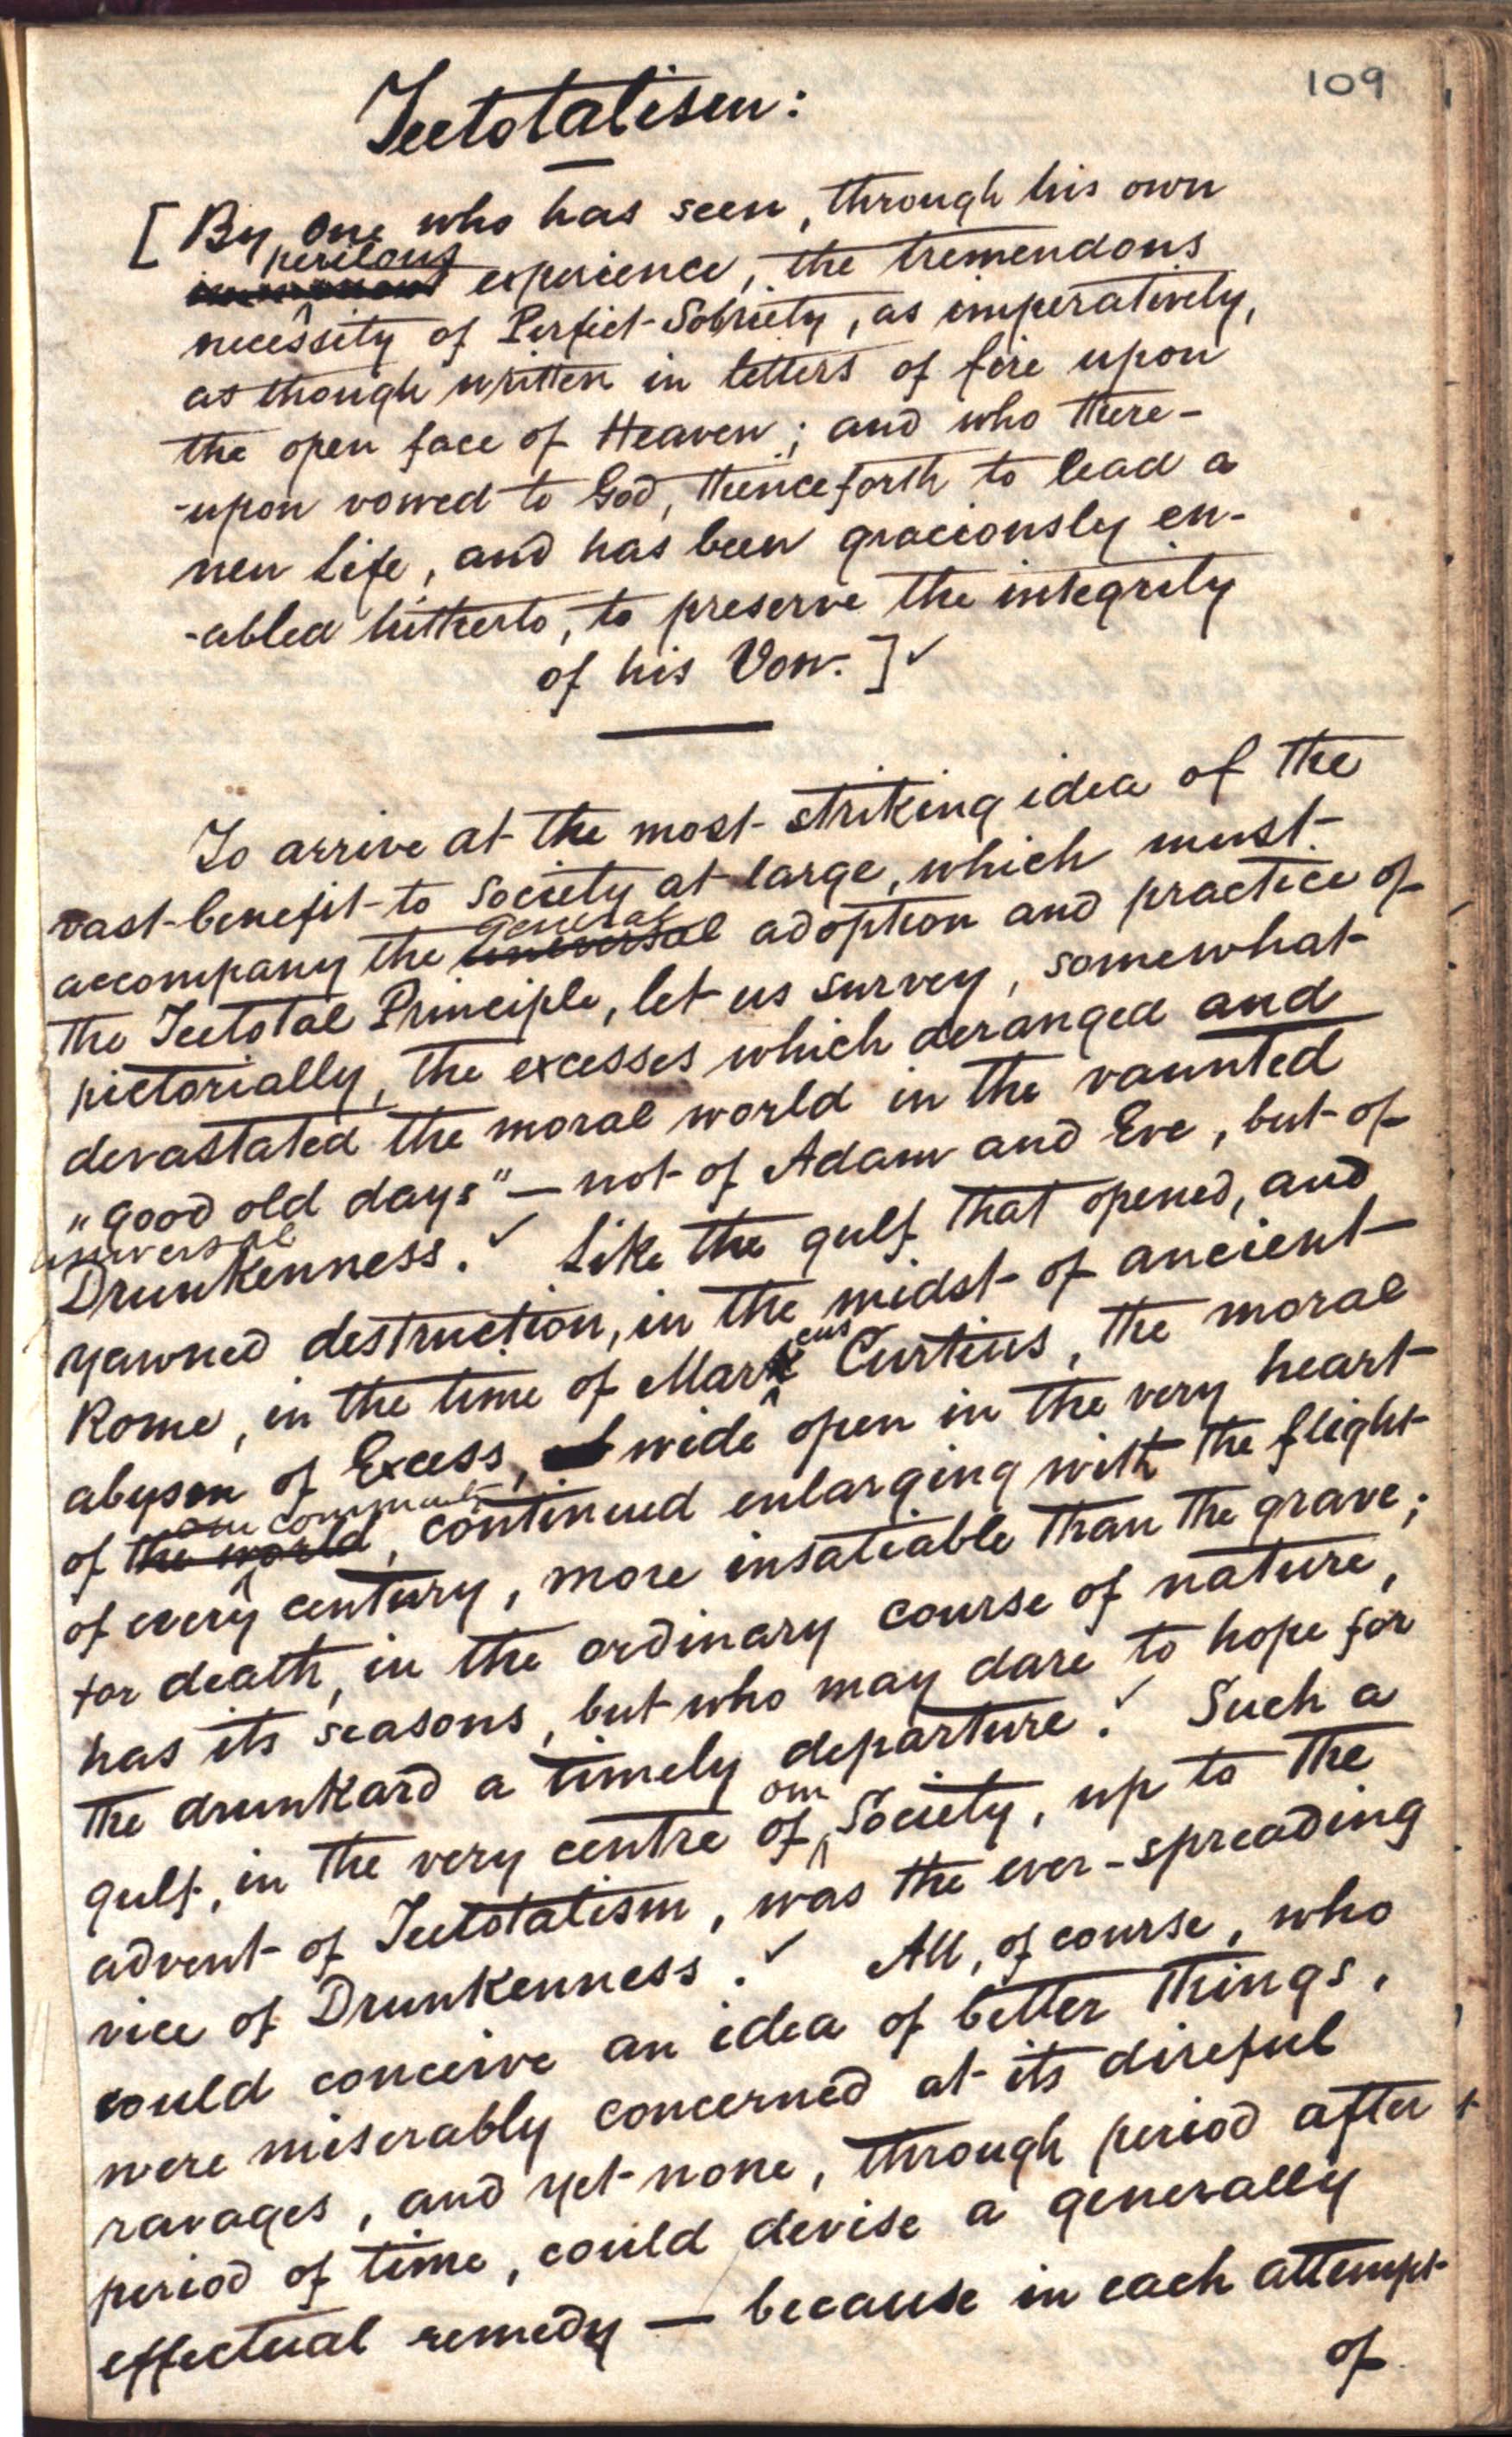 109
Teetotalism:
[By One who has seen, through his own
perilous
experience, the tremendous
necessity of Perfect-Sobriety, as imperatively,
as though written in letters of fire upon
the open face of Heaven; and who there-
-upon vowed to God, thenceforth to lead a
new life, and has been graciously en-
-abled hitherto, to preserve the integrity
of his Vow.]✓
To arrive at the most striking idea of the
vast benefit to Society at large, which must
general
accompany the universal adoption and practice of
the Teetotal Principle, let us survey, somewhat
pictorially, the excesses which deranged and
devastated the moral world in the vaunted
"good old days" — not of Adam and Eve, but of
universal
Drunkenness.✓ Like the gulf that opened, and
yawned destruction, in the midst of ancient
cus
Rome, in the time of Mark Curtius, the moral
abysm of Excess, wide open in the very heart
our community
of the world, continued enlarging with the flight
of every century, more insatiable than the grave;
for death, in the ordinary course of nature,
has its seasons, but who may dare to hope for
the drunkard a timely departure!✓ Such a
our
gulf, in the very centre of Society, up to the
advent of Teetotalism, was the ever-spreading
vice of Drunkenness.✓ All, of course, who
could conceive an idea of better things,
were miserably concerned at its direful
ravages, and yet none, through period after
period of time, could devise a generally
effectual remedy — because in each attempt
of